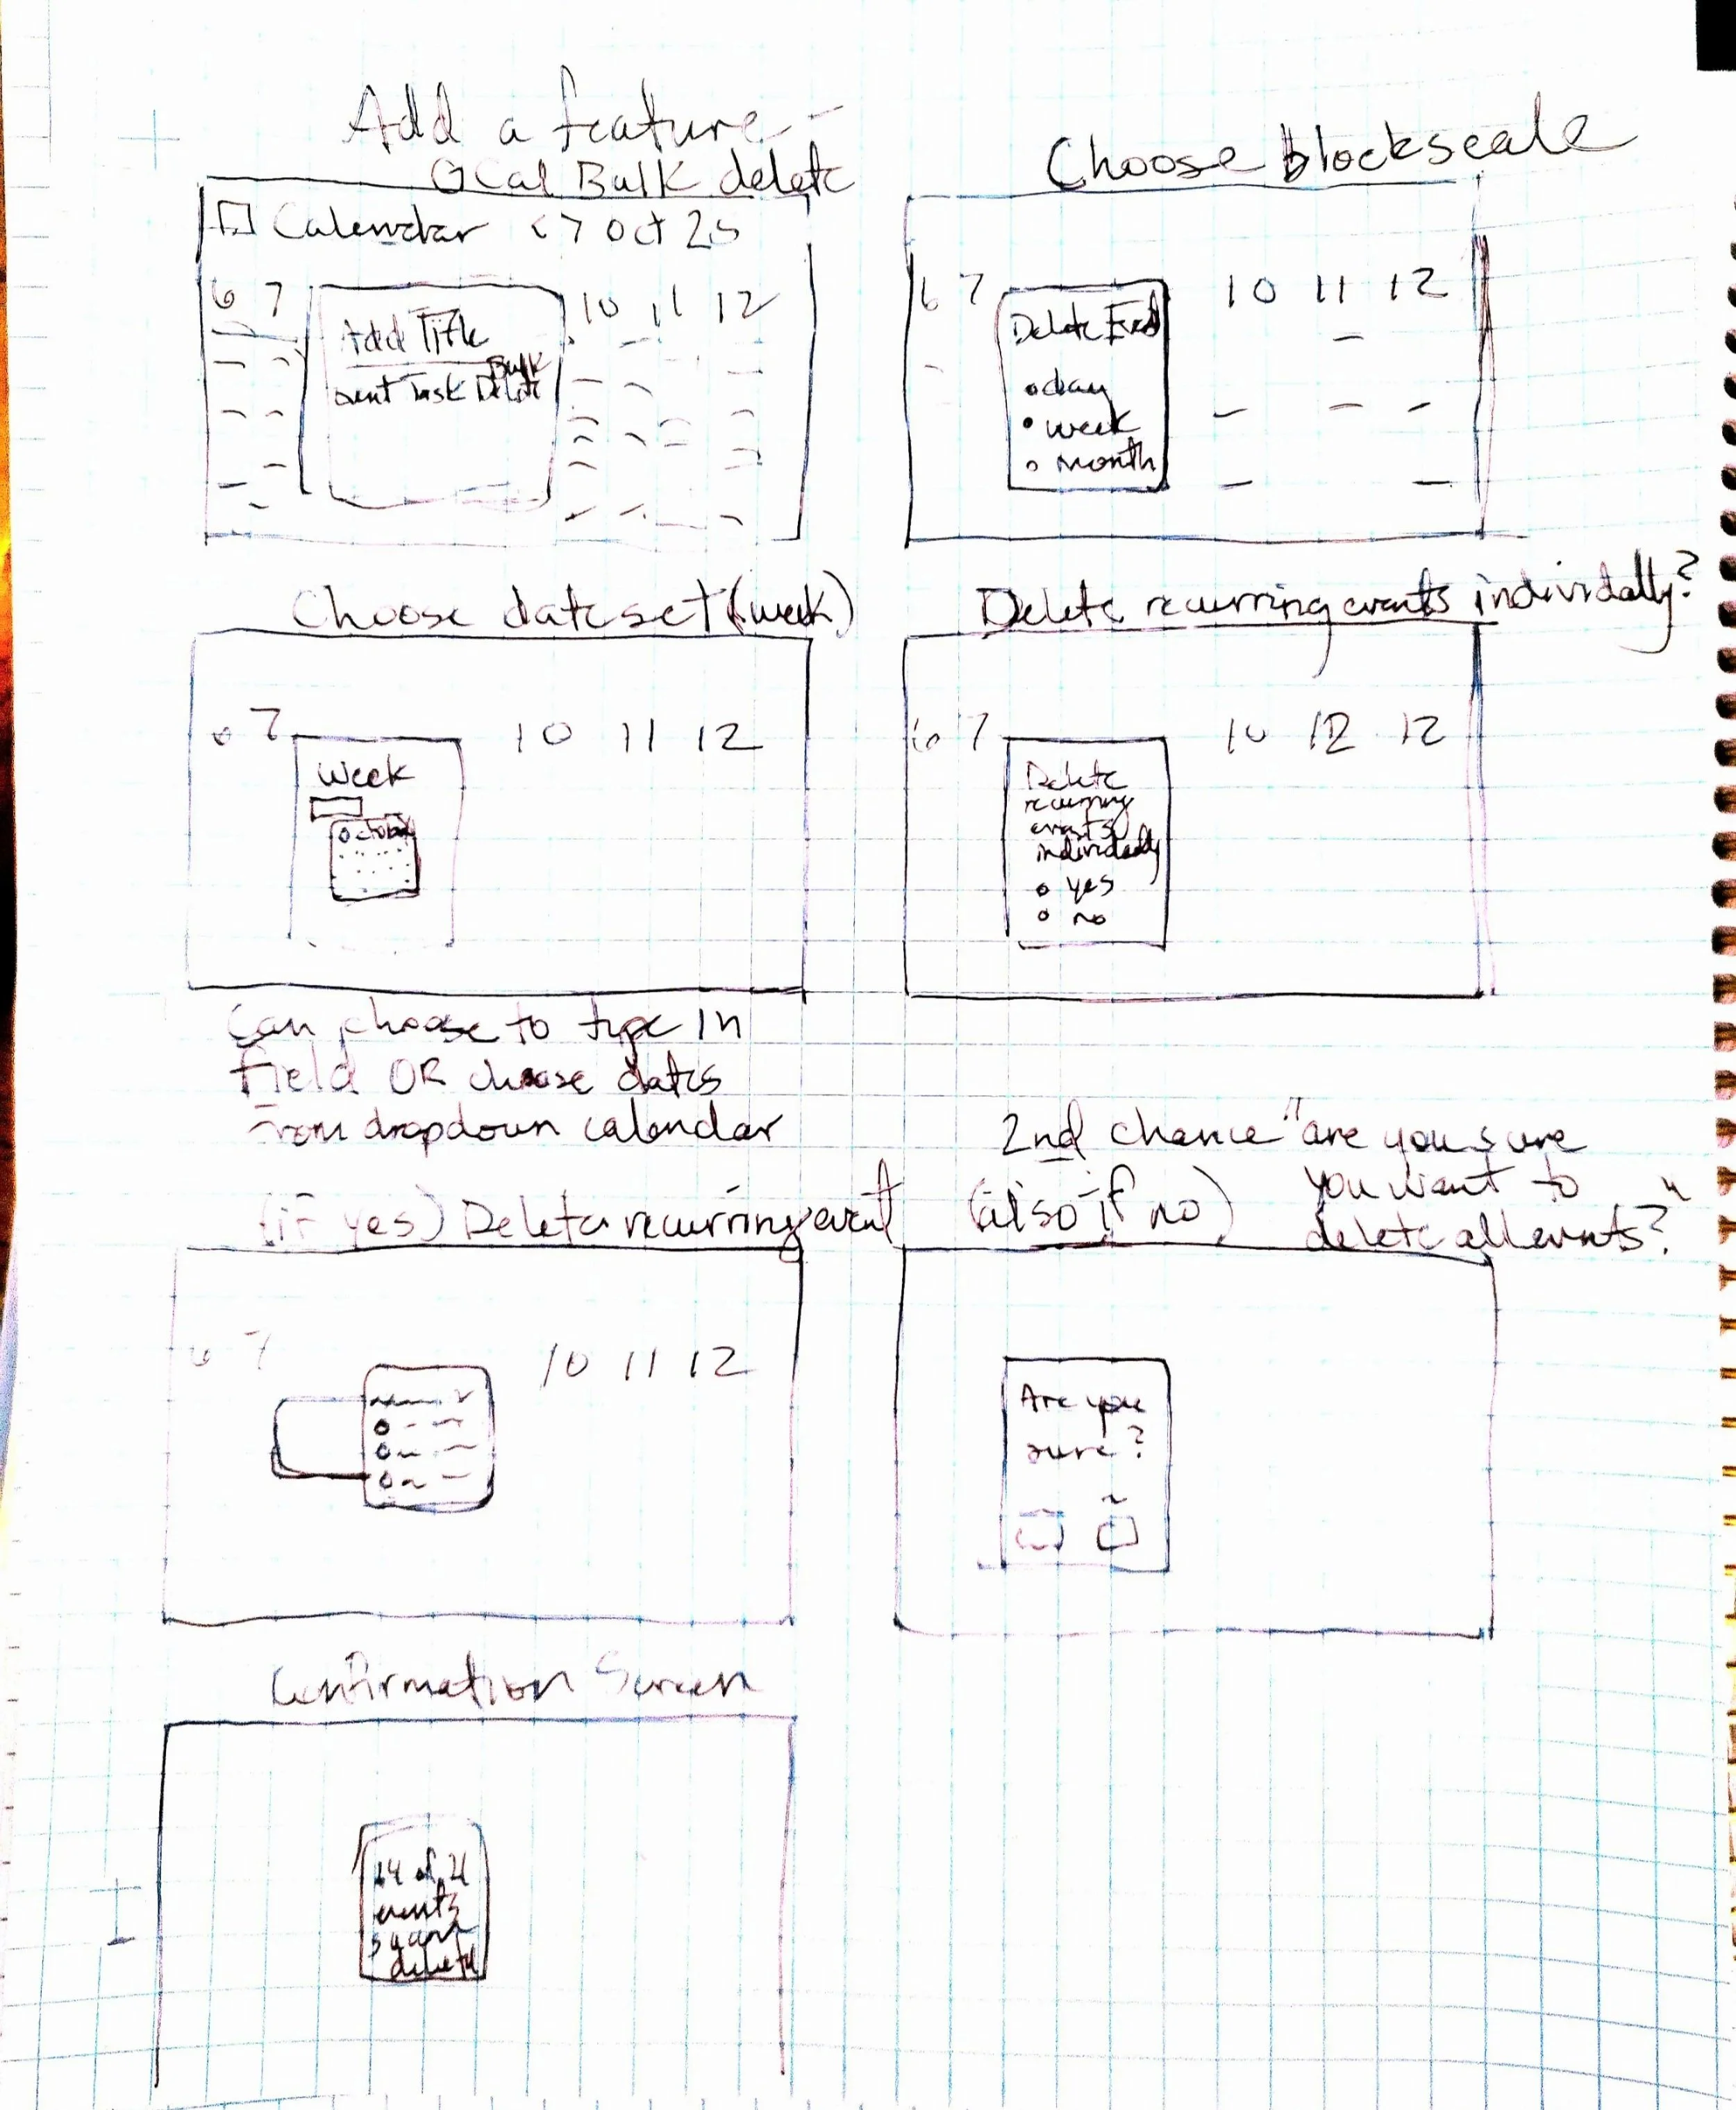 Add a feature -
GCal Bulk delete
Calendar < > Oct 25
6 7 10 11 12
Add Title
Bulk
Event Task Delete
Choose blockscale
6 7 10 11 12
Delete
day
week
month
Choose date set (week)
6 7 10 11 12
Week
October
Can choose to type in
field OR choose dates
from dropdown calendar
Delete recurring events individally?
6 7 10 12 12
Delete
recurring
events
individally
yes
no
(if yes) Delete recurring event
6 7 10 11 12
2nd chance "are you sure
you want to
delete all events?"
(also if no)
Are you
sure?
Confirmation Screen
of
events